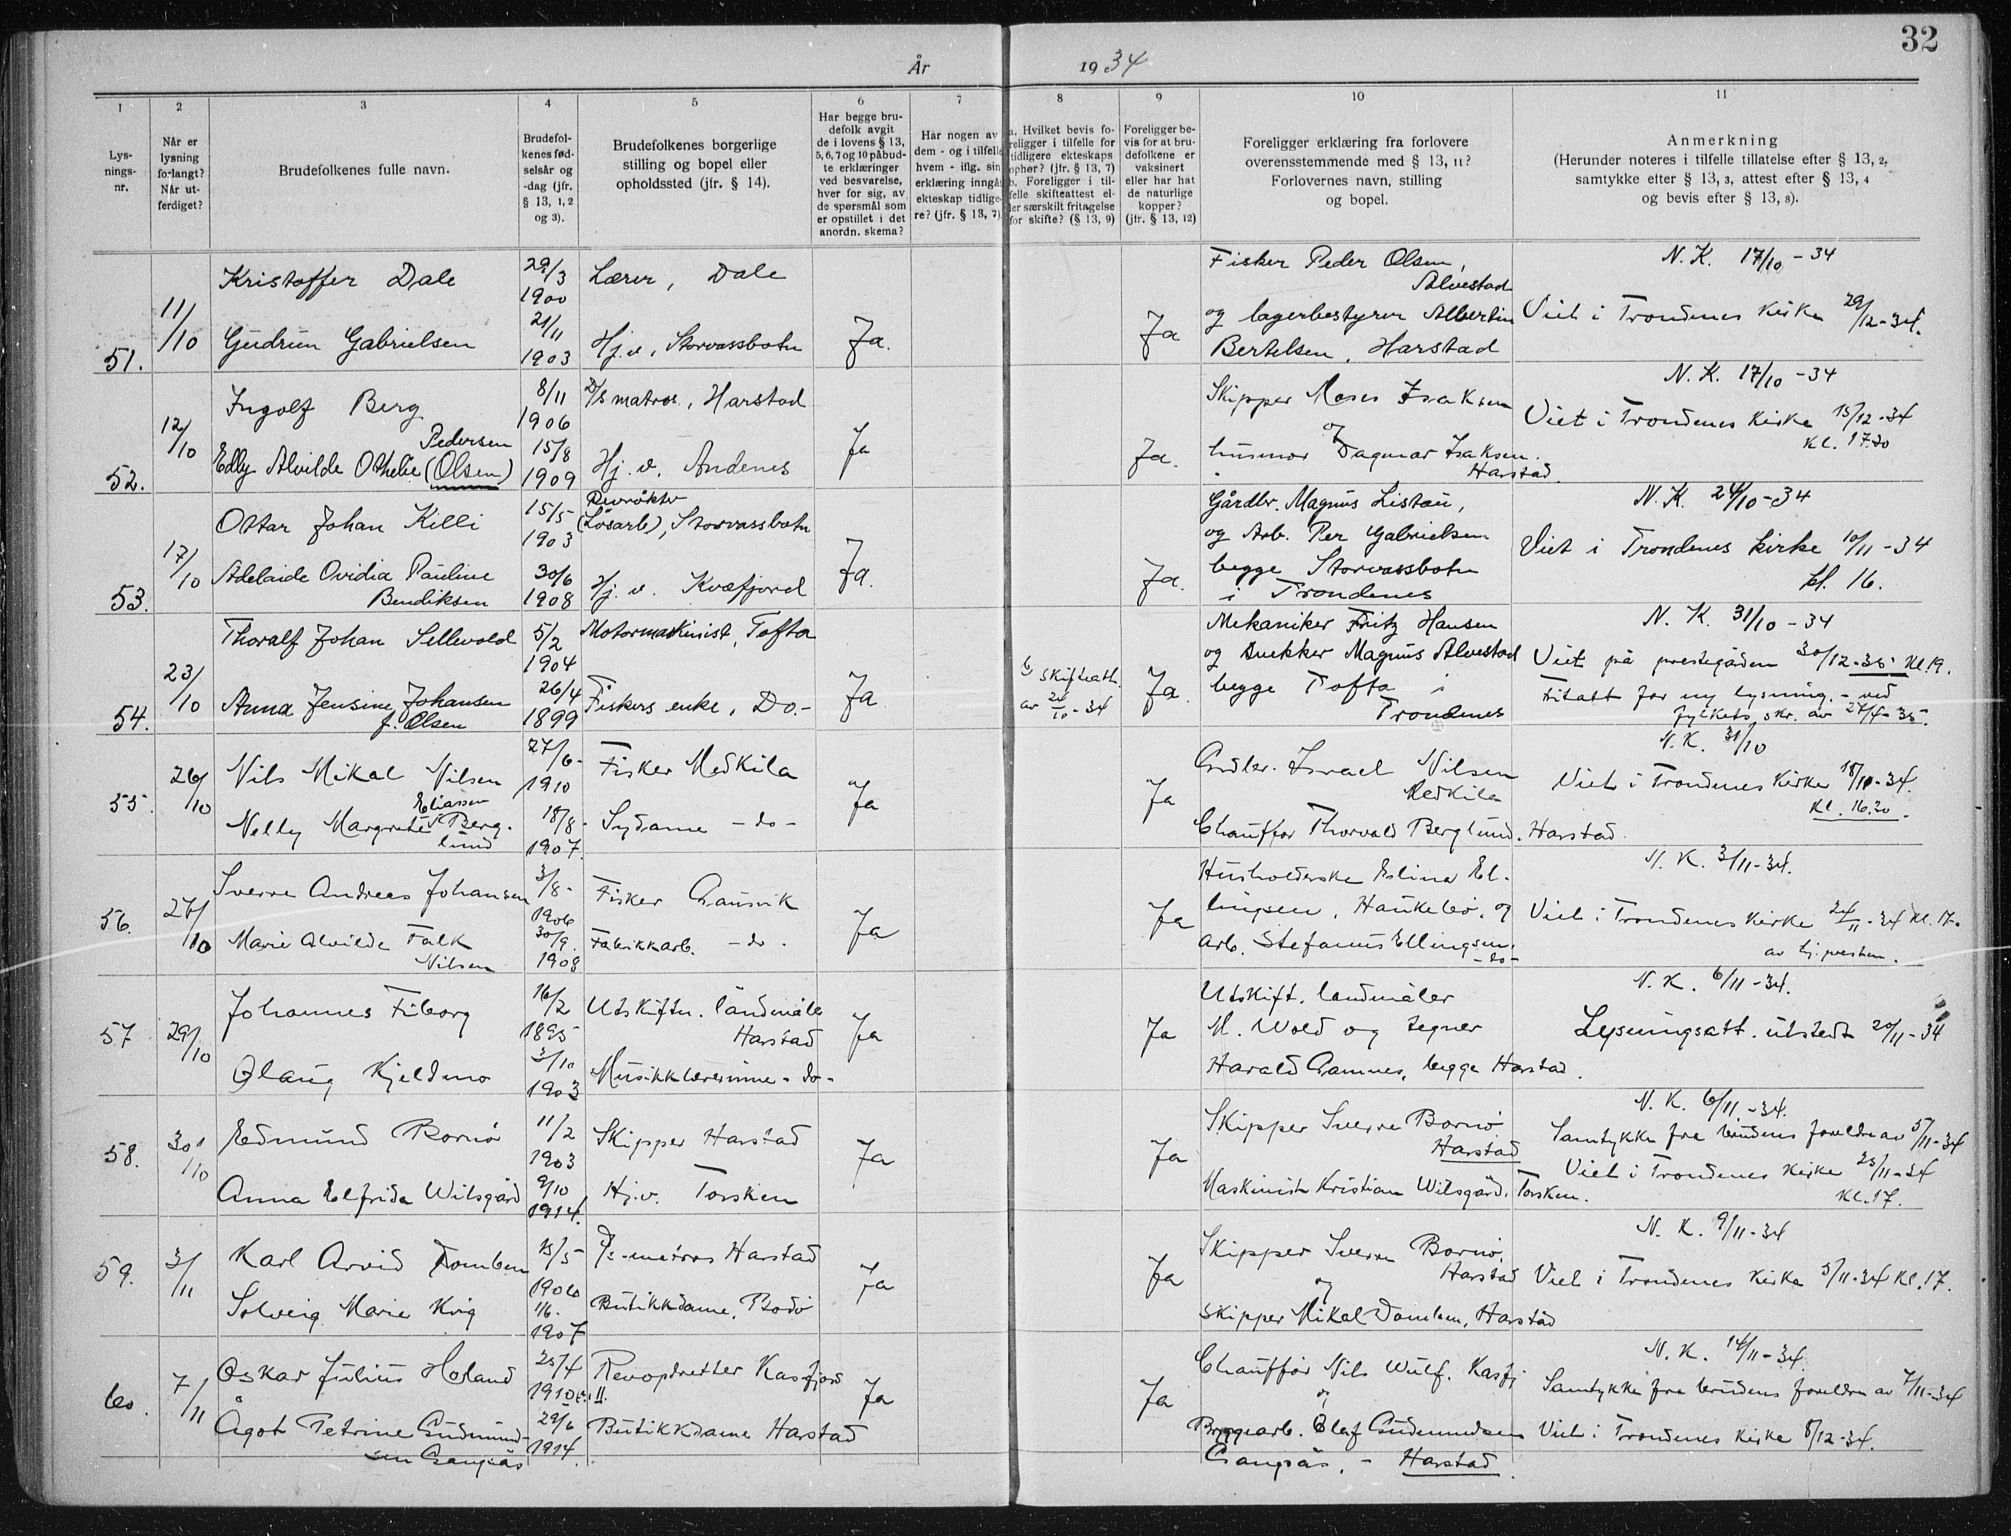 32
År 1934
1 2 3 4 5 6 7 8 9 10 11
Lys-
nings-
nr.
Når er
lysning
forlangt?
Når ut-
ferdiget?
Brudefolkenes fulle navn.
Brudefol-
kenes fød-
selsår og
-dag (jfr.
§ 13, 1, 2
og 3).
Brudefolkenes borgerlige
stilling og bopel eller
opholdssted (jfr. § 14).
Har begge bru-
defolk avgit
de i lovens § 13,
5, 6, 7 og 10 påbud-
te erklæringer
ved besvarelse,
hver for sig, av
de spørsmål som
er opstillet i det
anordn. skema?
Har nogen av
dem - og i tilfelle
hvem - iflg. sin
erklæring inngåt
ekteskap tidlige-
re? (jfr. § 13, 7)
a. Hvilket bevis fo-
religger i tilfelle for
tidligere ekteskaps
ophør? (jfr. § 13, 7)
b. Foreligger i til-
felle skifteattest el-
ler særskilt fritagelse
for skifte? (§ 13, 9)
Foreligger be-
vis for at bru-
defolkene er
vaksinert
eller har hat
de naturlige
kopper?
(jfr. § 13, 12)
Foreligger erklæring fra forlovere
overensstemmende med § 13, 11?
Forlovernes navn, stilling
og bopel.
Anmerkning
(Herunder noteres i tilfelle tillatelse efter § 13, 2,
samtykke efter § 13, 3, attest efter § 13, 4
og bevis efter § 13, 8).
51.
11/10
Kristoffer Dale
29/3
1900
Lærer, Dale
Gudrun Gabrielsen
21/11
1903
Hj.v., Storvassbotn
Ja.
Ja
Fisker Peder Olsen,
Alvestad
og lagerbestyrer Albertin
Bertelsen, Harstad
N. K. 17/10 - 34
Viet i Trondenes kirke 29/12-34.
52.
12/10
Ingolf Berg
8/11
1906
D/S matros, Harstad
Pedersen
Edly Alvilde Othelie (Olsen)
15/8
1909
Hj. v. Andenes
Ja
Ja.
Skipper Moses Isaksen
og
husmor Dagmar Isaksen.
Harstad.
N. K. 17/10 - 34
Viet i Trondenes kirke 15/12-34
kl. 17.30
53.
17/10
Ottar Johan Killi
15/5
1903
Revrøkter
(Løsarb), Storvassbotn
Adelaide Ovidia Pauline
Bendiksen
30/6
1908
Hj. v. Kvæfjord
Ja.
Ja.
Gårdbr. Magnus Listau,
og Arb. Per Gabrielsen
begge Storvassbotn
i Trondenes
N. K. 24/10 - 34
Viet i Trondenes kirke 10/11 - 34
kl. 16.
54.
23/10
Thoralf Johan Sellevold
5/2
1904
Motormaskinist, Tofta
Anna Jensine Johansen
f. Olsen
26/4
1899
Fiskers enke, Do.-
Ja
b) Skifteatt.
av 20/10 - 34
Ja.
Mekaniker Fritz Hansen
og Snekker Magnus Alvestad
begge Tofta i
Trondenes
N. K. 31/10 - 34
Viet på prestegården 30/12-35 kl. 19.
Fitatt for ny lysning. - ved
fylkets skr. av 27/4-35.
55.
26/10
Nils Mikal Nilsen
27/6-
1910
Fisker Medkila
Eliassen
Nelly Margrete Berg-
lund
18/8-
1907.
Sydame - do -
Ja
Ja
Grdbr. Israel Nilsen
Medkila
Chauffør Thorvald Berglund. Harstad.
N. K. 31/10
Viet i Trondenes kirke 18/11-34.
kl. 16.30.
56.
27/10
Sverre Andreas Johansen
3/8-
1906
Fisker Gausvik
Marie Alvilde Falk
Nilsen
30/9.
1908
Fabrikkarb. - do -
Ja
Ja
Husholderske Eline El-
lingsen, Haukebø, og
arb. Stefanus Ellingsen.
- do -
N. K. 3/11-34.
Viet i Trondenes kirke 24/11-34 kl. 17.
av hj.presten.
57
29/10
Johannes Fiborg
16/2
1895
Utskiftn. landmåler
Harstad
Olaug Kjeldmo
3/10
1903
Musikklærerinne - do -
Ja
Ja
Utskift. landmåler
M. Wold og tegner
Harald Gamnes, begge Harstad.
N. K. 6/11-34.
Lysningsatt. utstedt 20/11-34
58.
30/10
Edmund Bornø
11/2
1903
Skipper Harstad
Anna Elfrida Wilsgård
9/10
1914.
Hj.v. Torsken
Ja
Ja
Skipper Sverre Bornø
Harstad
Maskinist Kristian Wilsgård, Torsken.
N. K. 6/11.-34.
Samtykke fra brudens foreldre av 5/11-34
Viet i Trondenes kirke 25/11-34
kl. 17.
59.
3/11
Karl Arvid Tomben
15/5
1906
D/s-matros Harstad
Solveig Marie Krig
1/6.
1907
Butikkdame, Bodø
Ja
Ja
Skipper Sverre Bornø,
Harstad
og
skipper Mikal Tomben, Harstad
N. K. 9/11-34
Viet i Trondenes kirke 5/11-34 kl. 17.
60.
7/11
Oskar Julius Holand
25/4
1910
Revopdretter Kasfjord
Ågot Petrine Gudmund-
sen Gangsås
29/6
1914.
Butikkdame Harstad
Ja
Ja
Chauffør Nils Wulf. Kasfj
og
Bryggearb. Olaf Gudmundsen
Gangsås, - Harstad.
N. K. 14/11-34.
Samtykke fra brudens foreldre av 7/11-34
Viet i Trondenes kirke 8/12-34.